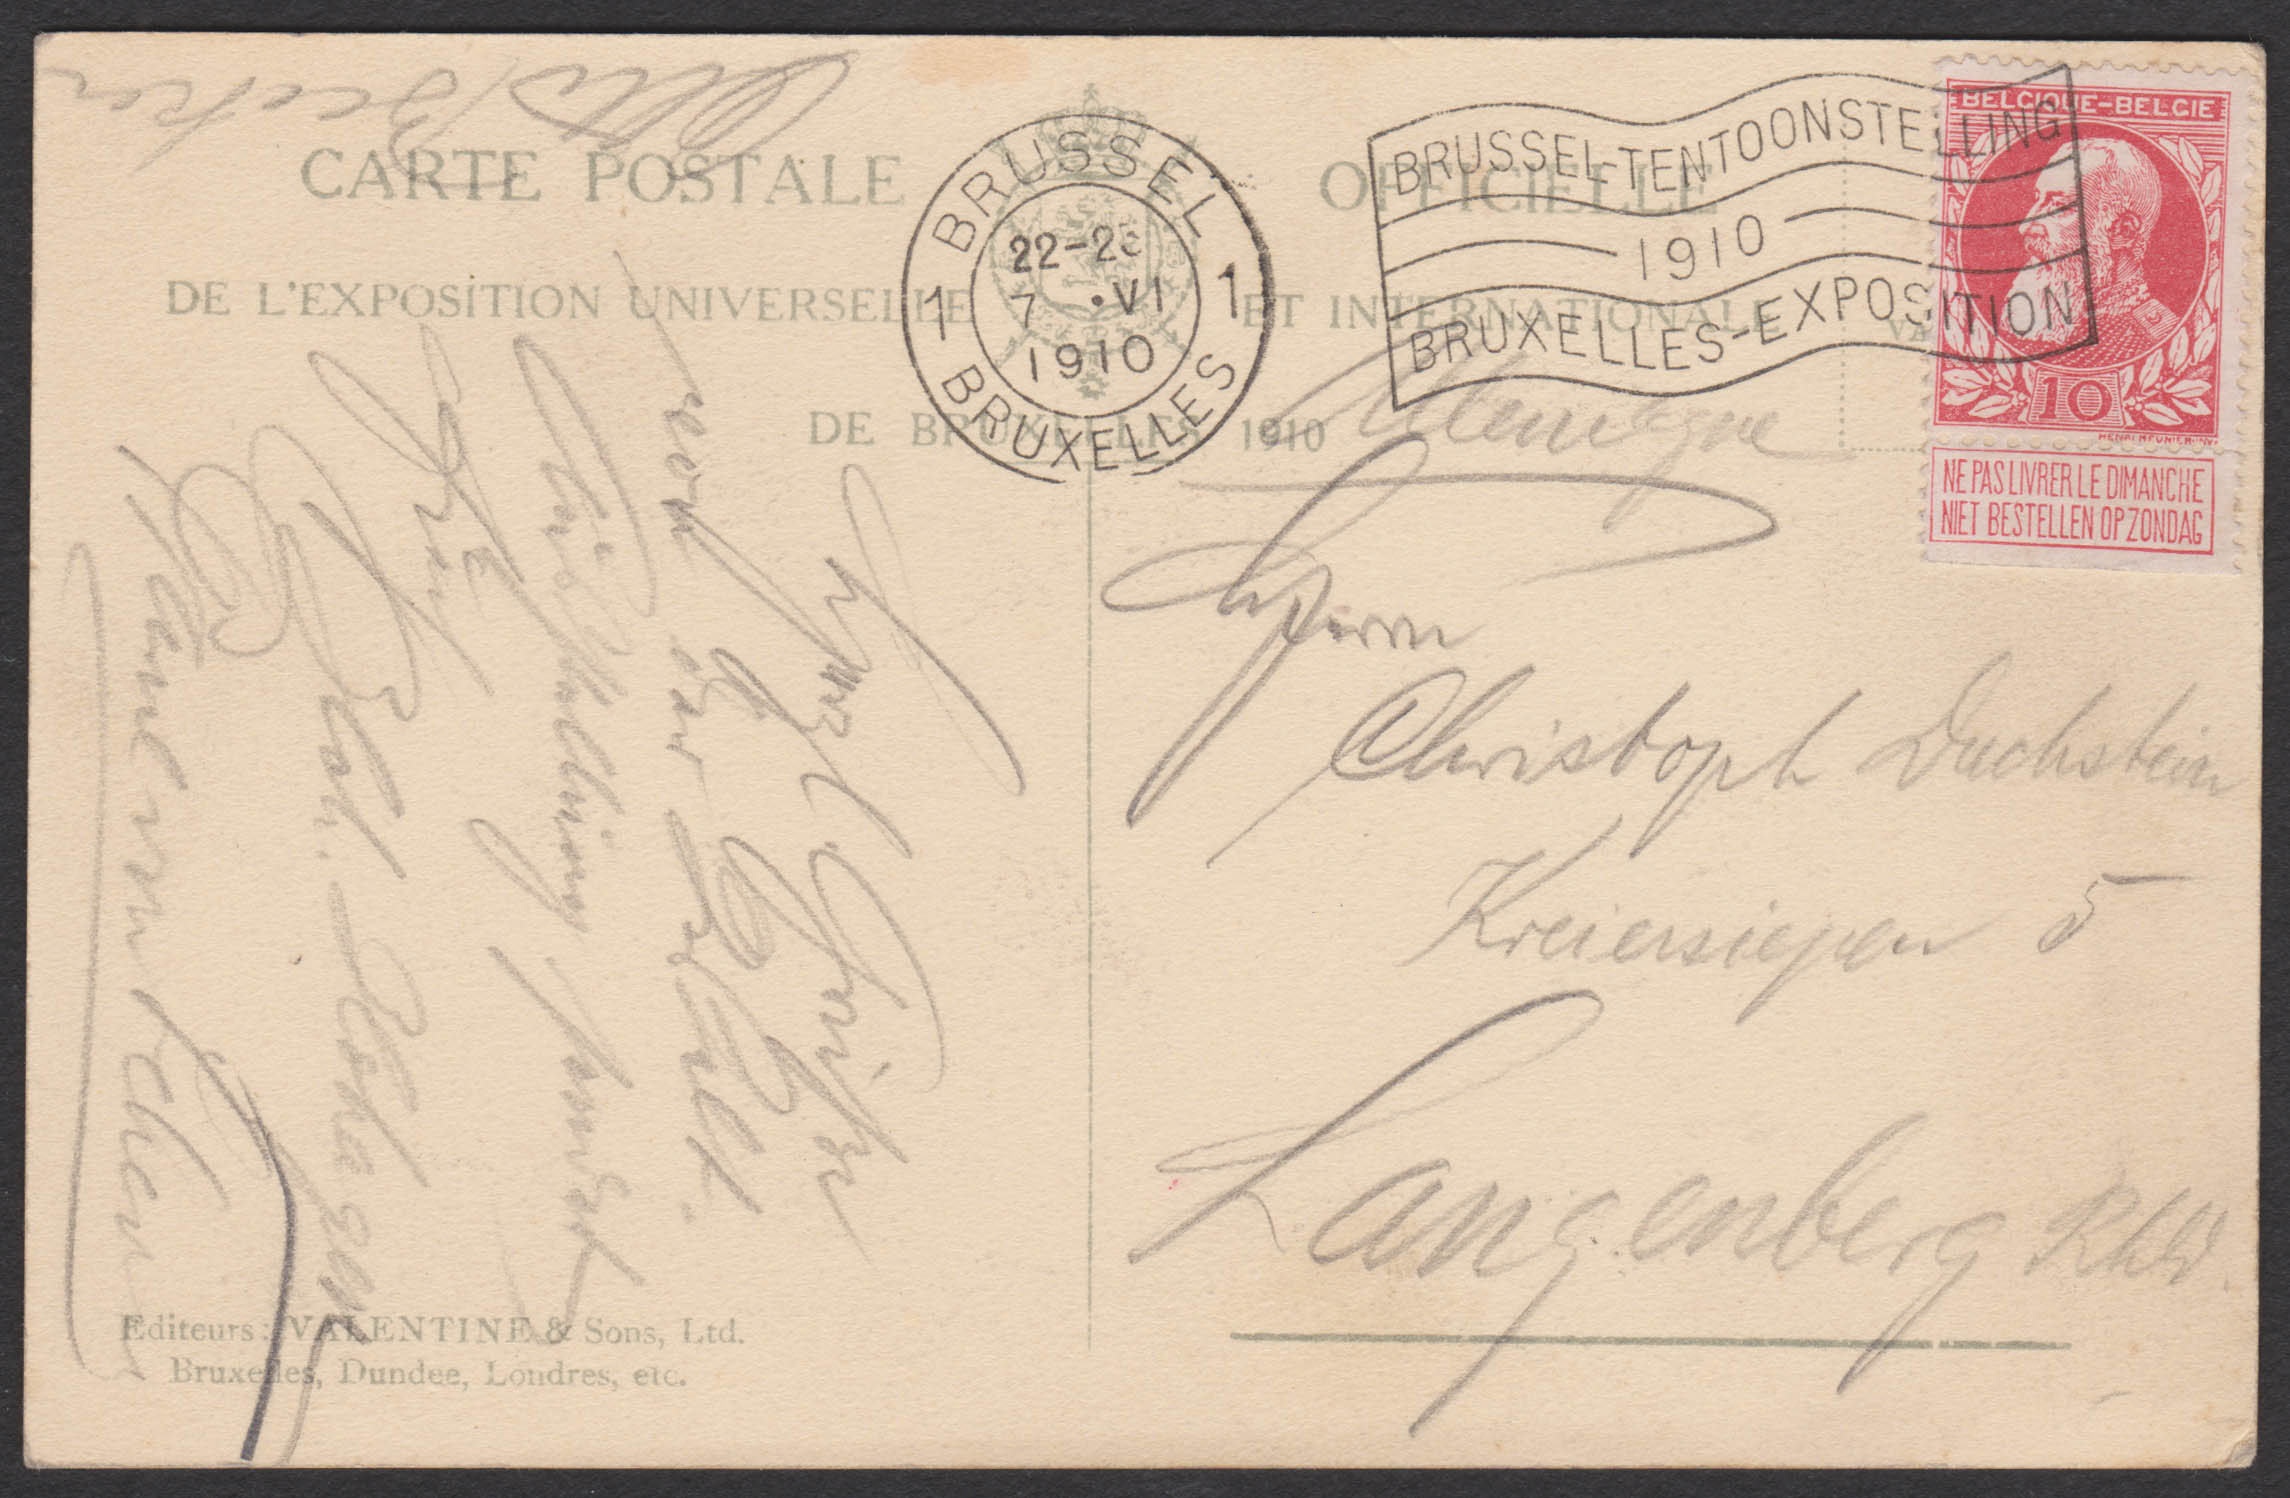 CARTE POSTALE OFFICIELLE
DE L'EXPOSITION UNIVERSELLE ET INTERNATIONALE
DE BRUXELLES 1910
BRUSSEL
1 1
22-23
7 ·VI
1910
BRUXELLES
BRUSSEL-TENTOONSTELLING
1910
BRUXELLES-EXPOSITION
BELGIQUE-BELGIE
10
HENRI MEUNIER·INV
NE PAS LIVRER LE DIMANCHE
NIET BESTELLEN OP ZONDAG
VA
Allemagne
Herrn
Christoph Dachstein
Kreiersiepen 5
Langenberg Rhld.
Herzl. Grüße
von der
Ausstellung sendet
Otto Becker
Editeurs: VALENTINE & Sons, Ltd.
Bruxelles, Dundee, Londres, etc.